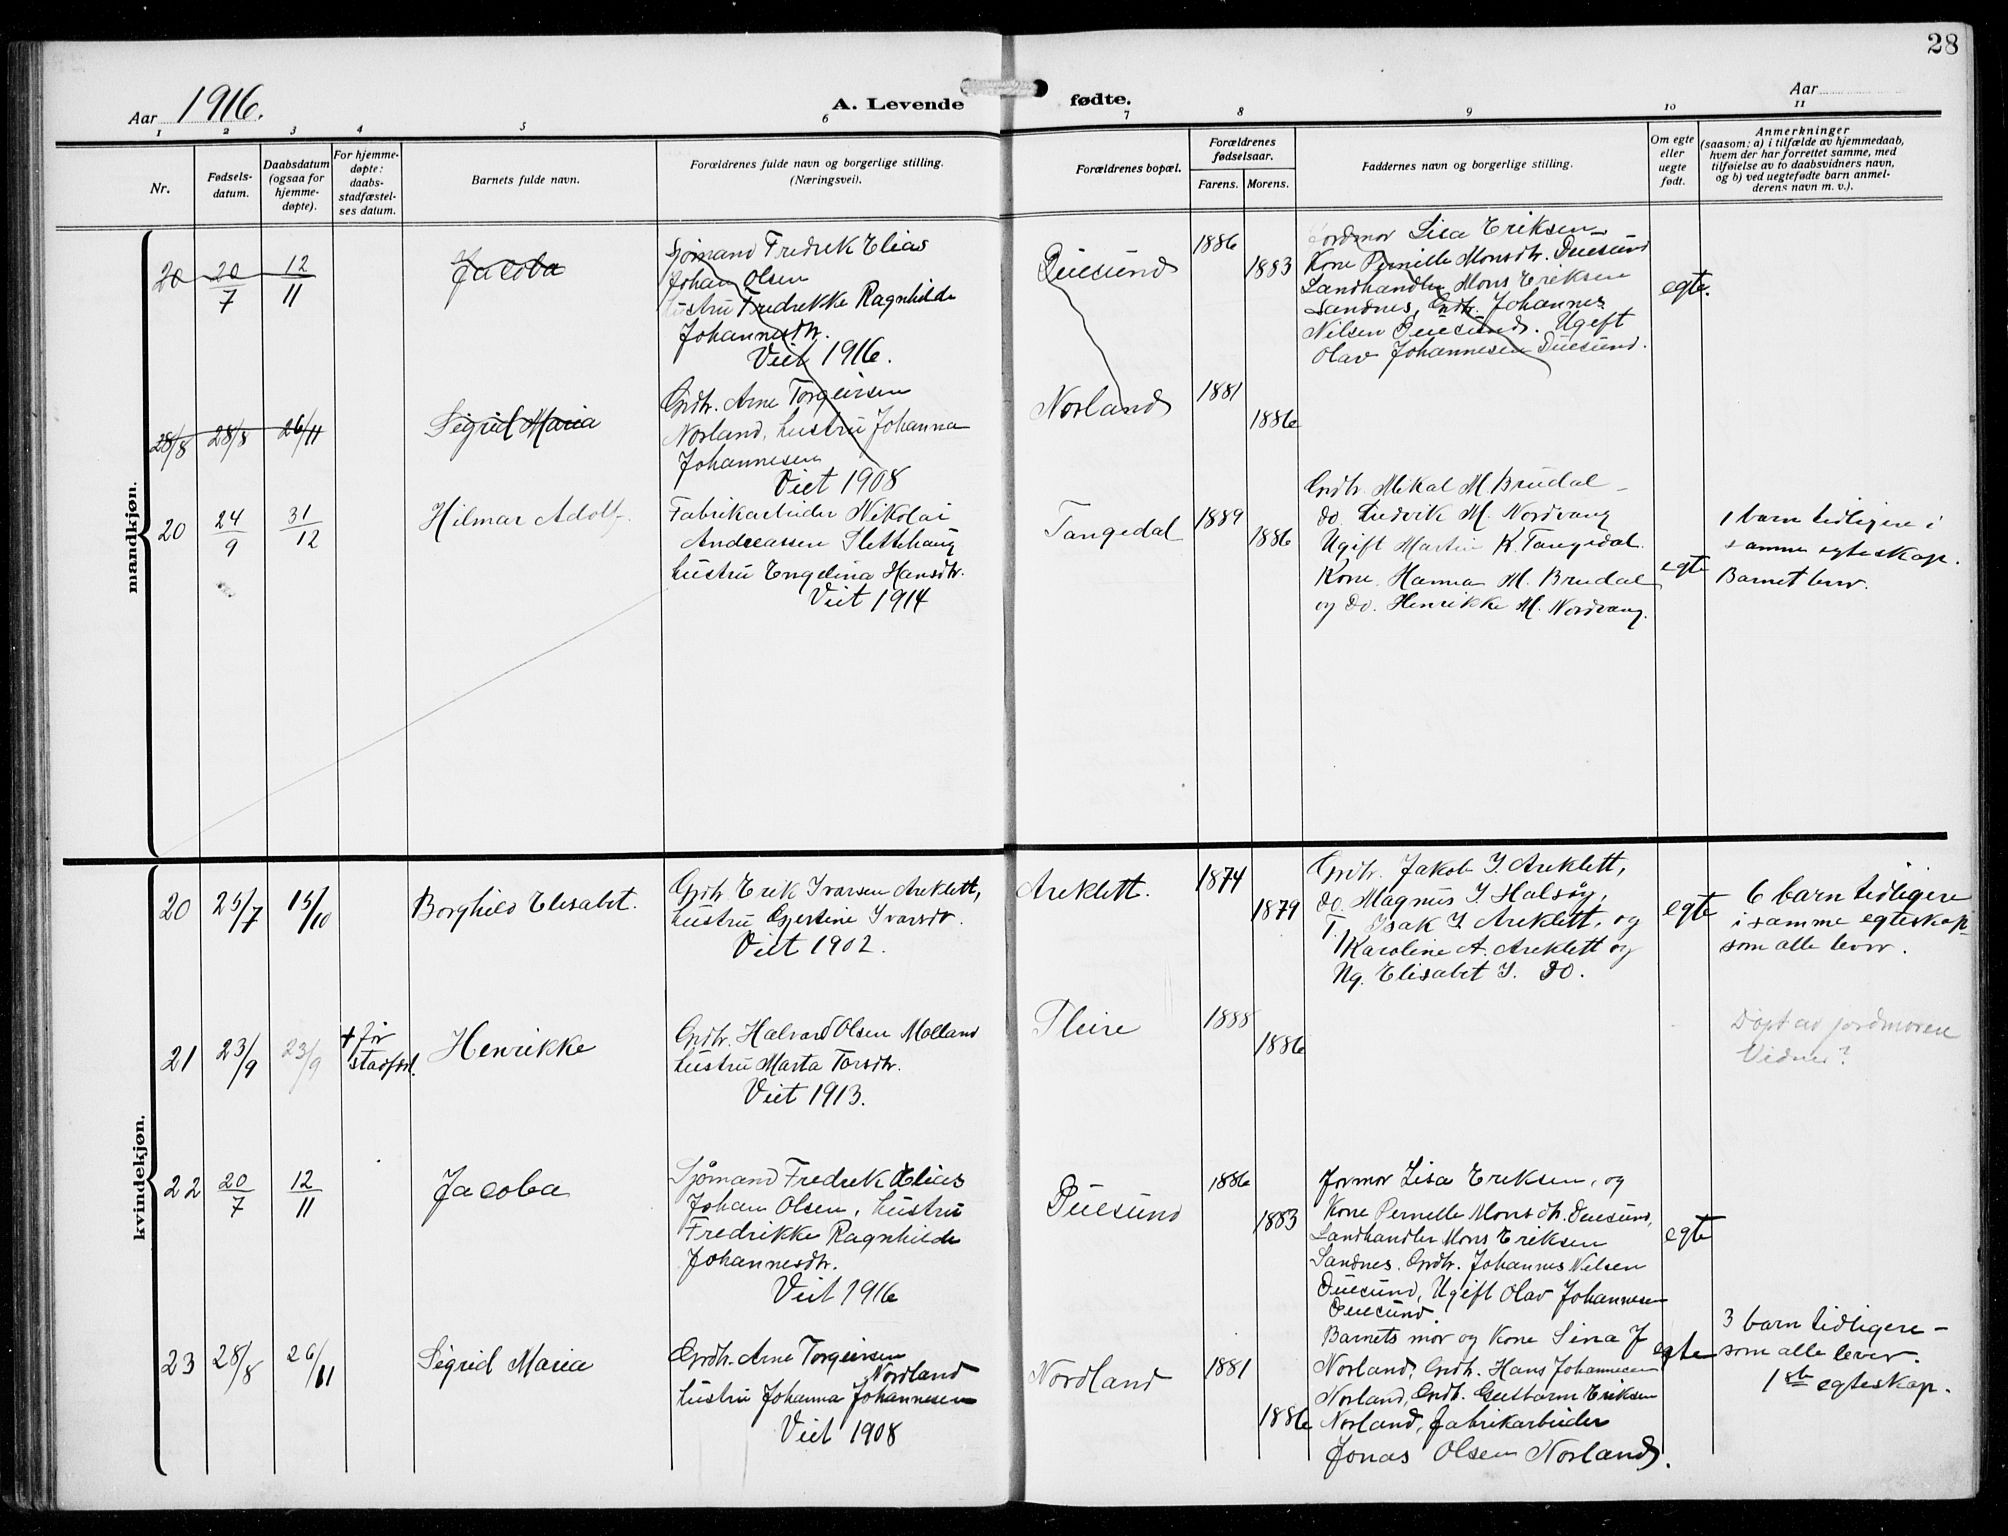 28
Aar 1916.
A. Levende fødte.
Aar
1 2 3 4 5 6 7 8 9 10 11
Nr.
Fødsels-
datum.
Daabsdatum
(ogsaa for
hjemme-
døpte).
For hjemme-
døpte:
daabs-
stadfæstel-
ses datum.
Barnets fulde navn.
Forældrenes fulde navn og borgerlige stilling.
(Næringsvei).
Forældrenes bopæl.
Forældrenes
fødselsaar.
Farens. Morens.
Faddernes navn og borgerlige stilling.
Om egte
eller
uegte
født.
Anmerkninger
(saasom: a) i tilfælde av hjemmedaab,
hvem der har forrettet samme, med
tilføielse av to daabsvidners navn,
og b) ved uegtefødte barn anmel-
derens navn m. v.).
mandkjøn.
20 20/7 12/11
Jacoba
Sjømand Fredrek Elias
Johan Olsen
hustru Fredrekke Ragnhilde
Johannesdtr.
Viet 1916.
Duesund
1886
1883
Jordmor Lisa Eriksen
Kone Pernille Monsdtr. Duesund
Landhandler Mons Eriksen
Sandnes, Grdbr. Johannes
Nilsen Duesund. Ugift
Olav Johannesen Duesund.
egte.
28/8 28/8 26/11
Sigrid Maria
Grdbr. Arne Torgeirsen
Norland, hustru Johanna
Johannesen
Viet 1908
Norland
1881
1886
20 24/9 31/12
Hilmar Adolf
Fabrikarbeider Nikolai
Andreassen Slettehaug
hustru Engelina Hansdtr.
Viet 1914
Tangedal
1889
1886
Grdbr. Mikal M Brudal
do. Ludvik M. Nordvang
Ugift Martin K. Tangedal.
Kone Hanna M. Brudal
og do. Henrikke M. Nordvang.
egte
1 barn tidligere i
samme egteskap.
Barnet lever.
kvindekjøn.
20 25/7 15/10
Borghild Elisabet.
Grdbr. Erik Ivarsen Areklett,
hustru Gjertine Ivarsdtr.
Viet 1902.
Areklett.
1874
1879
Grdbr. Jakob I. Areklett,
do. Magnus I. Halsøy,
T. Isak I. Areklett, og
Karoline A. Areklett og
Ug. Elisabet I. do.
egte
6 barn tidligere
i samme egteskap
som alle lever.
21 23/9 23/9
+ før
stadfest.
Henrikke
Grdbr. Halvard Olsen Molland
hustru Marta Torsdtr.
Viet 1913.
Fleire
1888
1886
Døpt av jordmoren
Vidner?
22 20/7 12/11
Jacoba
Sjømand Fredrek Elias
Johan Olsen, hustru
Fredrikke Ragnhilde
Johannesdtr.
Viet 1916
Duesund
1886
1883
Jormor Lisa Eriksen, og
Kone Pernelle Monsdtr. Duesund,
Landhandler Mons Eriksen
Sandnes. Grdbr. Johannes Nilsen
Duesund, Ugift Olav Johannesen
Duesund.
egte
23 28/8 26/11
Sigrid Maria
Grdbr. Arne Torgeirsen
Nordland
hustru Johanna Johannesen
Viet 1908
Nordland
1881
1886
Barnets mor og Kone Sina J
Norland, Grdbr. Hans Johannesen
Norland, Grdb. Guttorm Eriksen
Norland, Fabrikarbeider
Jonas Olsen Norland.
egte
3 barn tidligere –
som alle lever.
1ste egteskap.